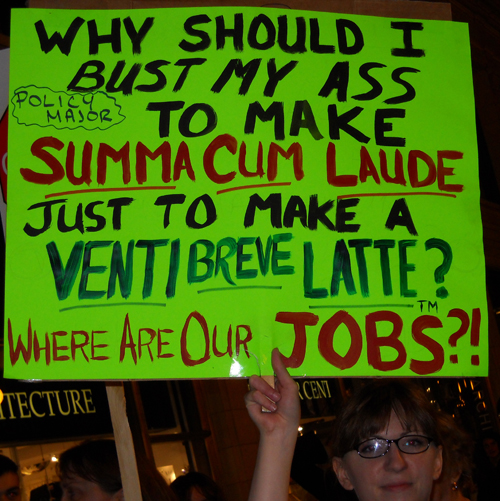 WHY SHOULD I
BUST MY ASS
POLICY
MAJOR
TO MAKE
SUMMA CUM LAUDE
JUST TO MAKE A
VENTI BREVE LATTE?
WHERE ARE OUR JOBS™?!
ITECTURE
R CENT